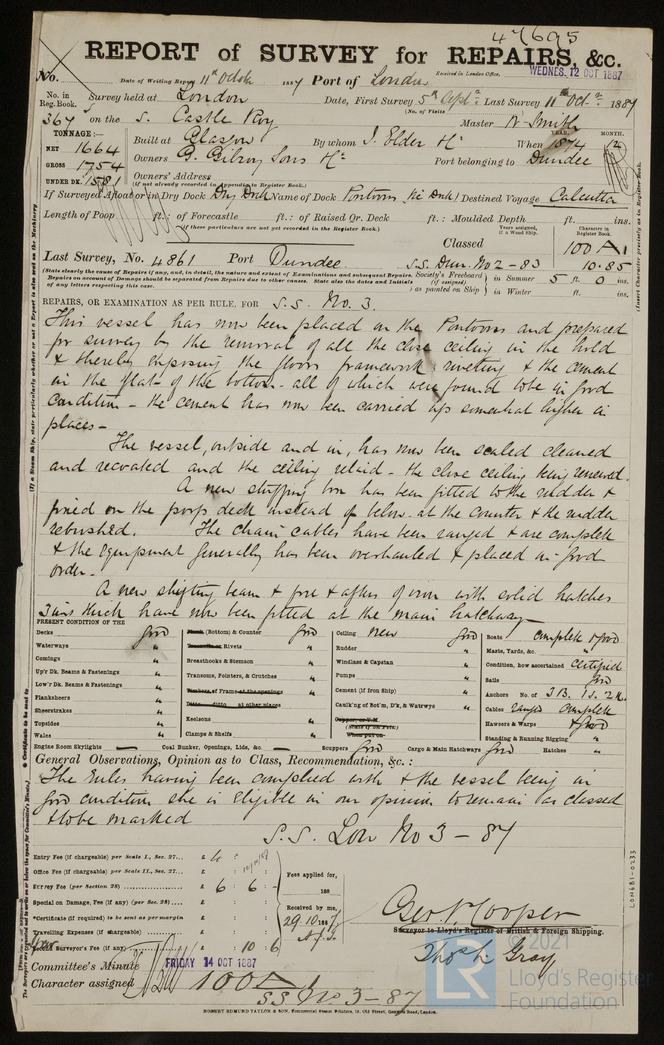 47695
REPORT of SURVEY for REPAIRS, &c.
No. Date of Writing Report 11th Octobr 1887 Port of London Received in London Office. WEDNES. 12 OCT 1887
No. in Reg. Book. Survey held at London Date, First Survey 5th Sept. Last Survey 11th Oct. 1887
(No. of Visits
367 on the S. S. Castle Roy Master W. Smith
TONNAGE:— YEAR. MONTH.
NET 1664 Built at Glasgow By whom J. Elder When 1874 12
GROSS 1754 Owners G. Gilroy Sons Port belonging to Dundee
UNDER DK. 1581 Owners' Address
(If not already recorded in Appendix to Register Book.)
If Surveyed Afloat or in Dry Dock Dry Dock Name of Dock Pontoon Destined Voyage Calcutta
Length of Poop ft.: of Forecastle ft.: of Raised Qr. Deck ft.: Moulded Depth ft. ins.
(If these particulars are not yet recorded in the Register Book.) Years assigned, if a Wood Ship. Character in Register Book.
Classed 100 A1
Last Survey, No. 4861 Port Dundee S.S. Dun. No 2 - 83 10.85
(State clearly the cause of Repairs if any, and, in detail, the nature and extent of Examinations and subsequent Repairs. Society's Freeboard in Summer 5 ft. 0 ins.
Repairs on account of Damage should be separated from Repairs due to other causes. State also the dates and Initials (if assigned)
of any letters respecting this case. as painted on Ship in Winter ft. ins.
REPAIRS, OR EXAMINATION AS PER RULE, FOR S.S. No. 3.
This vessel has now been placed on the Pontoon and prepared
for survey by the removal of all the close ceiling in the hold
& thereby exposing the floors framework rivetting & the cement
in the flat of the bottom - all of which were found to be in good
condition - the cement has now been carried up somewhat higher in
places -
The vessel, outside and in, has now been scaled cleaned
and recoated and the ceiling relaid - the close ceiling being renewed.
A new stuffing box has been fitted to the rudder &
fixed on the poop deck instead of below at the counter & the rudder
rebushed. The chain cables have been ranged & are complete
& the equipment generally has been overhauled & placed in good
order -
A new shifting beam & fore & afters of iron with solid hatches
3 ins thick have now been fitted at the main hatchway -
PRESENT CONDITION OF THE
Decks good Plank (Bottom) & Counter good Ceiling new good Boats complete & good
Waterways " Treenails or Rivets " Rudder " Masts, Yards, &c. "
Comings " Breasthooks & Stemson " Windlass & Capstan " Condition, how ascertained Certified
Up'r Dk. Beams & Fastenings " Transoms, Pointers, & Crutches " Pumps " Sails good
Low'r Dk. Beams & Fastenings " Timbers of Frame at the openings Cement (if Iron Ship) " Anchors No. of 3B. 1S. 2K.
Planksheers " Ditto ditto at other places Caulk'ng of Bot'm, D'k, & Watrwys " Cables ranged complete
Sheerstrakes " Keelsons " Copper, or Y.M. Hawsers & Warps & good
Topsides " (State if on Felt) Standing & Running Rigging "
Wales " Clamps & Shelfs " When put on
Engine Room Skylights — Coal Bunker, Openings, Lids, &c. — Scuppers good Cargo & Main Hatchways good Hatches "
General Observations, Opinion as to Class, Recommendation, &c. :
The Rules having been complied with & the vessel being in
good condition she is eligible in our opinion to remain as classed
& to be marked
S.S. Lon No 3 - 87
Entry Fee (if chargeable) per Scale I., Sec. 27...
Office Fee (if chargeable) per Scale II., Sec. 27... Fees applied for,
Survey Fee (per Section 28) £ 6 : 6 : - 188
Special on Damage, Fee (if any) (per Sec. 28)
*Certificate (if required) to be sent as per margin Received by me,
Travelling Expenses (if chargeable) 29.10.1887
Second Surveyor's Fee (if any) 10 . 6
Geo. Cooper
Surveyor to Lloyd's Register of British & Foreign Shipping.
Thos. Gray
Committee's Minute FRIDAY 14 OCT 1887
Character assigned 100 A 1
SS No 3 - 87
ROBERT EDMUND TAYLOR & SON, Commercial Steam Printers, 19, Old Street, Goswell Road, London.
LON681-0233
© 2021
LR
Lloyd's Register
Foundation